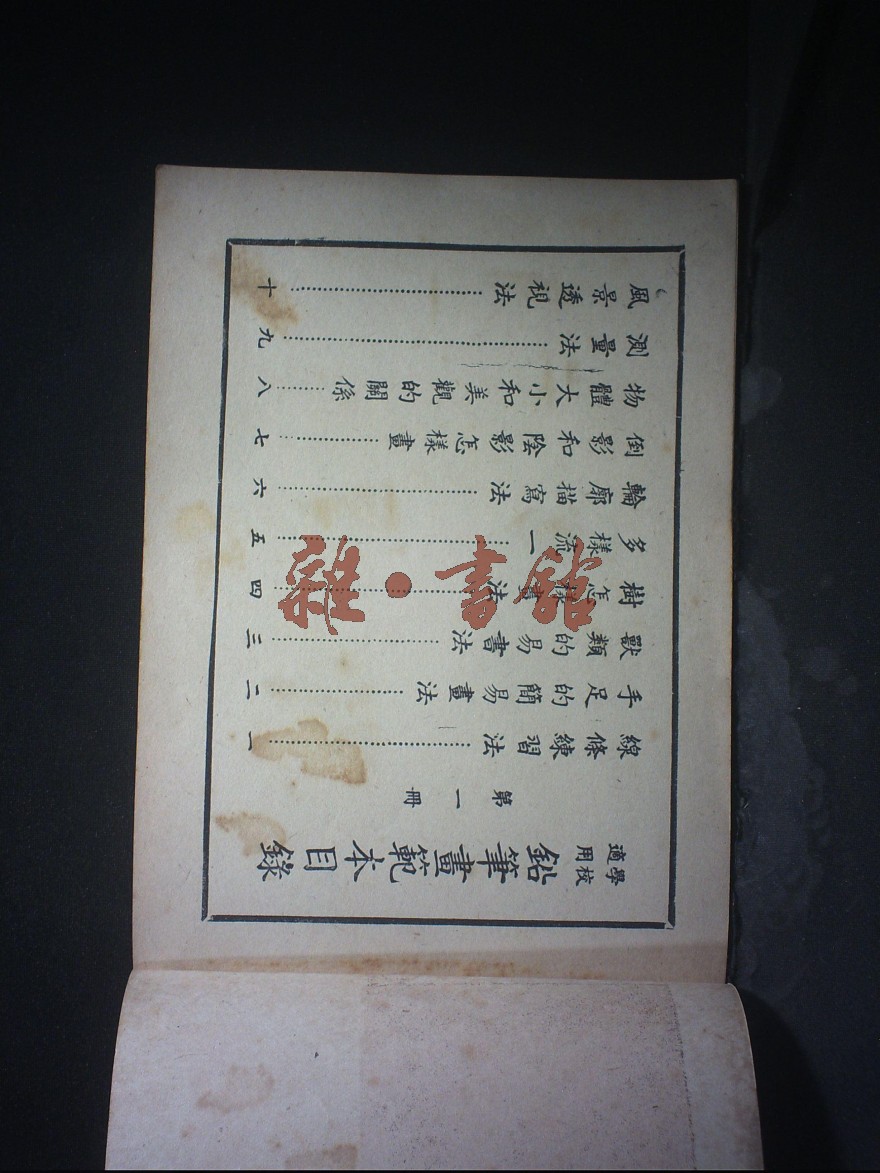 學校適用 鉛筆畫範本目錄
第一冊
線條練習法……一
手足的簡易畫法……二
獸類的易畫法……三
樹怎樣畫法……四
多樣流一……五
輪廓描寫法……六
倒影和陰影怎樣畫……七
物體大小和美觀的關係……八
測量法……九
風景透視法……十
雜·書館